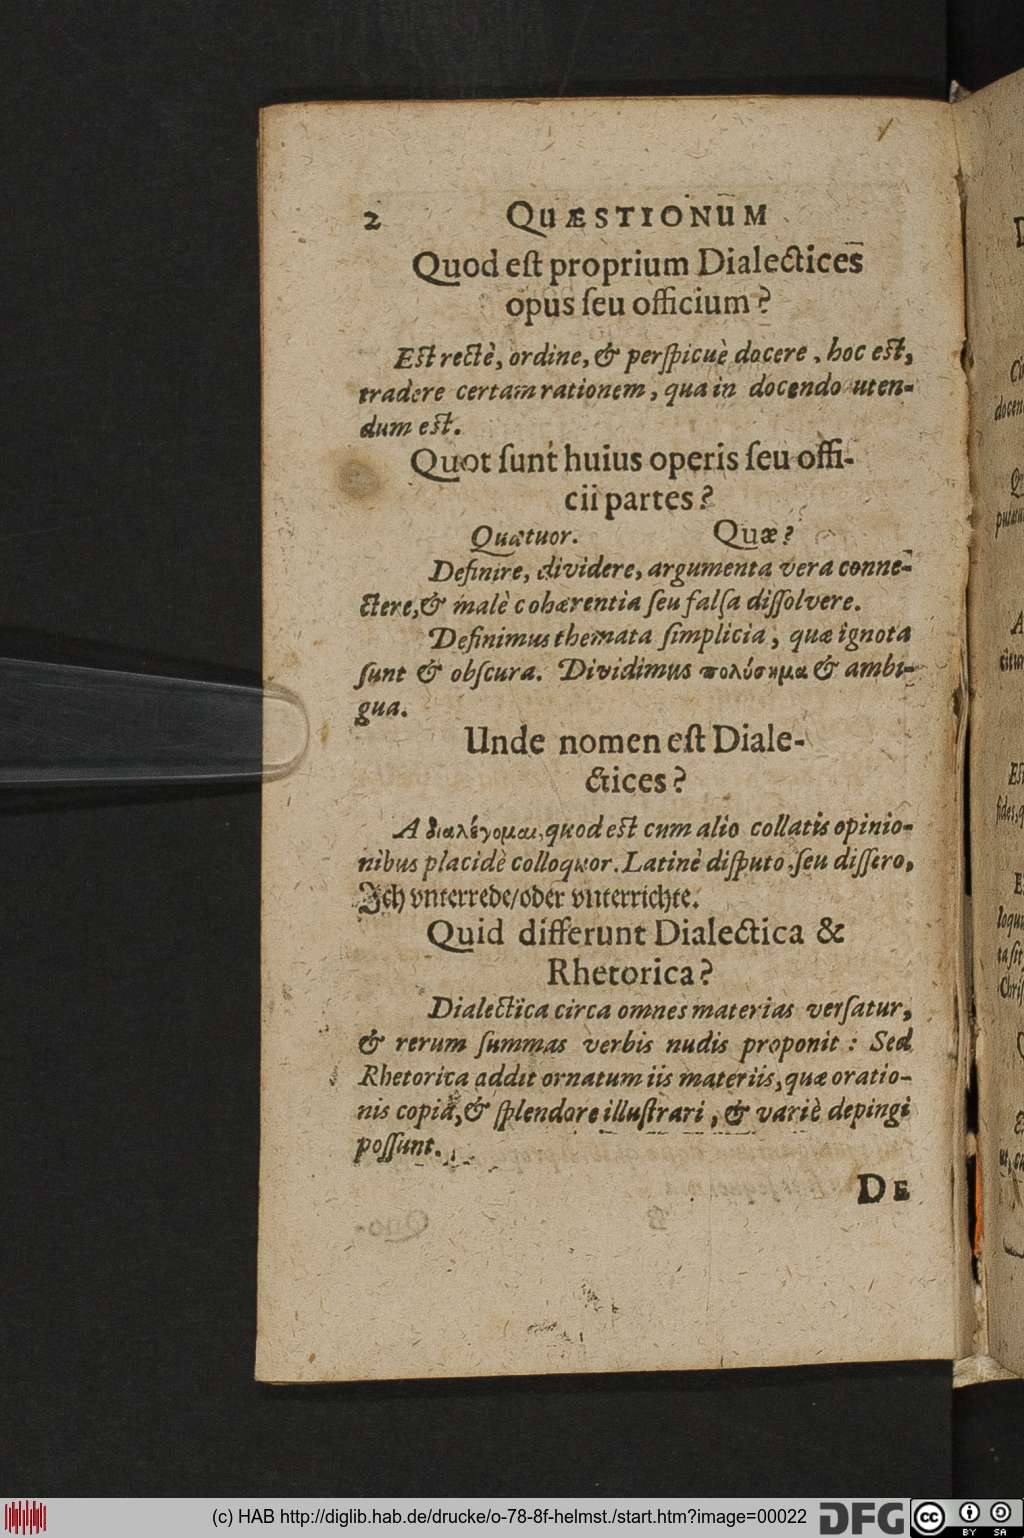 2 QUÆSTIONUM
Quod eſt proprium Dialectices
opus ſeu officium?
Eſt rectè, ordine, & perſpicuè docere, hoc eſt,
tradere certam rationem, qua in docendo uten-
dum eſt.
Quot ſunt huius operis ſeu offi-
cii partes?
Quatuor. Quæ?
Definire, dividere, argumenta vera conne-
ctere, & malè cohærentia ſeu falſa diſſolvere.
Definimus themata ſimplicia, quæ ignota
ſunt & obſcura. Dividimus πολύσημα & ambi-
gua.
Unde nomen eſt Diale-
ctices?
A διαλέγομαι, quod eſt cum alio collatis opinio-
nibus placidè colloquor. Latinè diſputo ſeu diſſero,
Ich vnterrede/oder vnterrichte.
Quid differunt Dialectica &
Rhetorica?
Dialectica circa omnes materias verſatur,
& rerum ſummas verbis nudis proponit: Sed
Rhetorica addit ornatum iis materiis, quæ oratio-
nis copiâ, & ſplendore illuſtrari, & variè depingi
poſſunt.
DE
(c) HAB http://diglib.hab.de/drucke/o-78-8f-helmst./start.htm?image=00022
DFG
cc BY SA